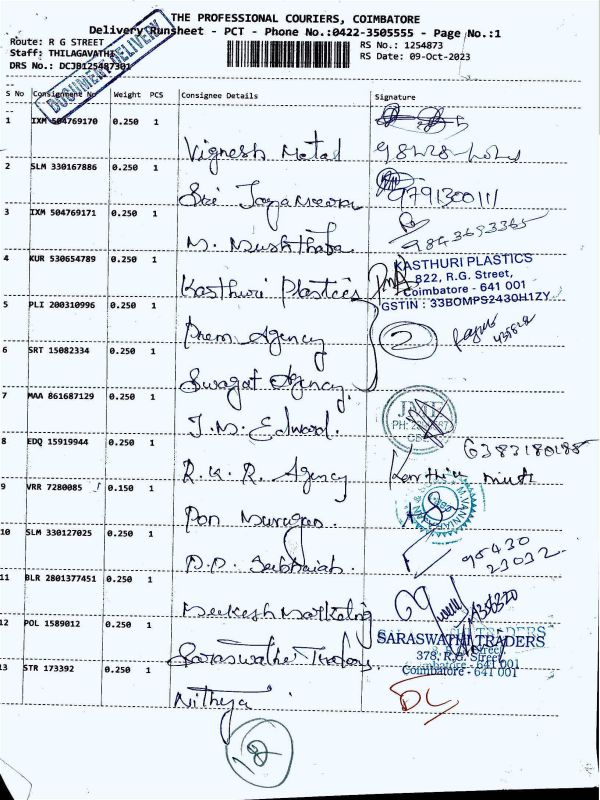 THE PROFESSIONAL COURIERS, COIMBATORE
Delivery Runsheet - PCT - Phone No.:0422-3505555 - Page No.:1
Route: R G STREET
RS No.: 1254873
Staff: THILAGAVATHI
RS Date: 09-Oct-2023
DRS No.: DCJB125487301
DOCUMENT DELIVERY
S No Consignment No Weight PCS Consignee Details Signature
1 IXM 504769170 0.250 1 Vignesh Metal
2 SLM 330167886 0.250 1 Sri 9791300111
3 IXM 504769171 0.250 1 M. Mushthafa 9843693365
4 KUR 530654789 0.250 1 Kasthuri Plastics
KASTHURI PLASTICS
822, R.G. Street,
Coimbatore - 641 001
GSTIN : 33BOMPS2430H1ZY
5 PLI 200310996 0.250 1 Prem Agency 2
6 SRT 15082334 0.250 1 Swagat Agency.
7 MAA 861687129 0.250 1 J.M. Edward.
JME
8 EDQ 15919944 0.250 1 R.K.R. Agency 6383180185
9 VRR 7280085 0.150 1 Pon Murugan
10 SLM 330127025 0.250 1 95430
23032
11 BLR 2801377451 0.250 1 Mukesh Marketing
12 POL 1589012 0.250 1 Saraswathi Traders
SARASWATHI TRADERS
378, R.G. Street
Coimbatore - 641 001
13 STR 173392 0.250 1 Nithya DL
12